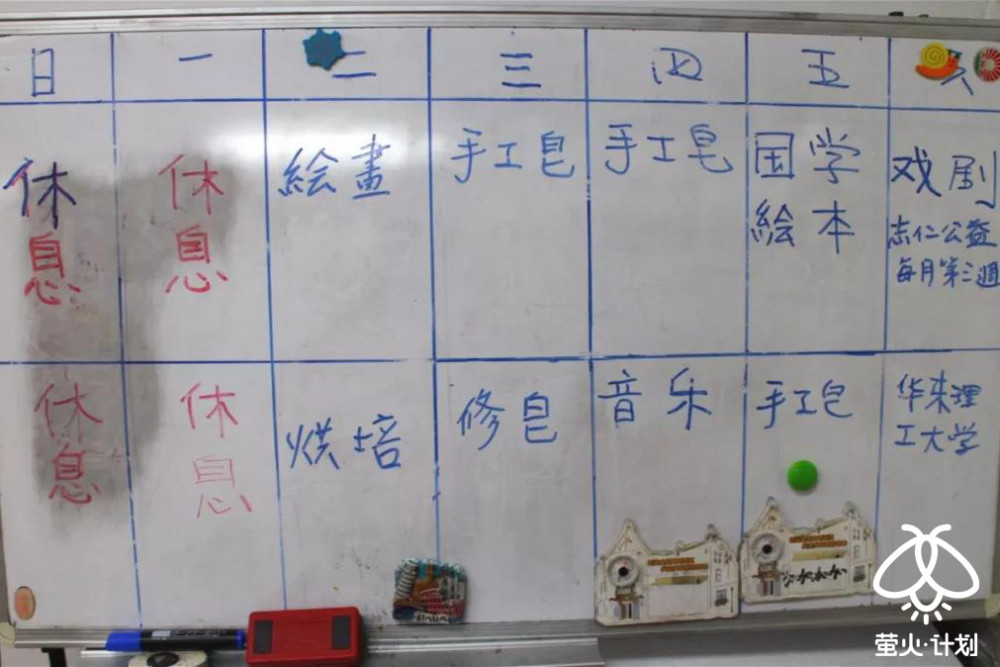 日 一 二 三 四 五 六
休息 休息 絵畫 手工皂 手工皂 国学 戏剧
絵本 志仁公益
每月第三週
休息 休息 烘培 修皂 音乐 手工皂 华来理
工大学
萤火·计划